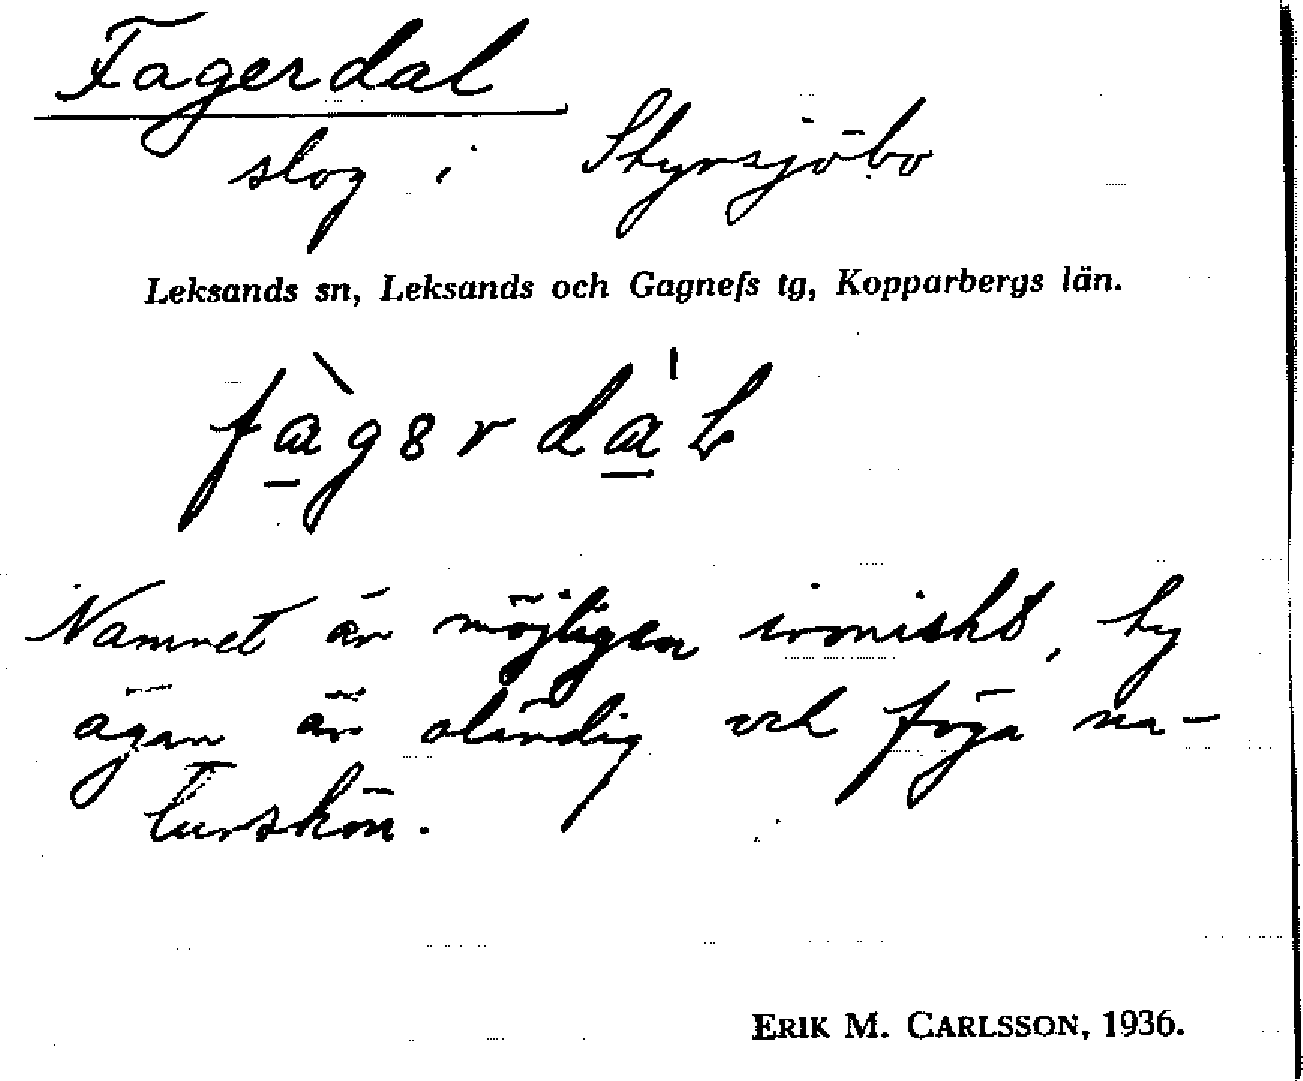 Fagerdal
slog i Styrsjöbo
Leksands sn, Leksands och Gagnefs tg, Kopparbergs län.
Namnet är möjligen ironiskt, ty
ägan är oländig och föga na-
turskön.
ERIK M. CARLSSON, 1936.